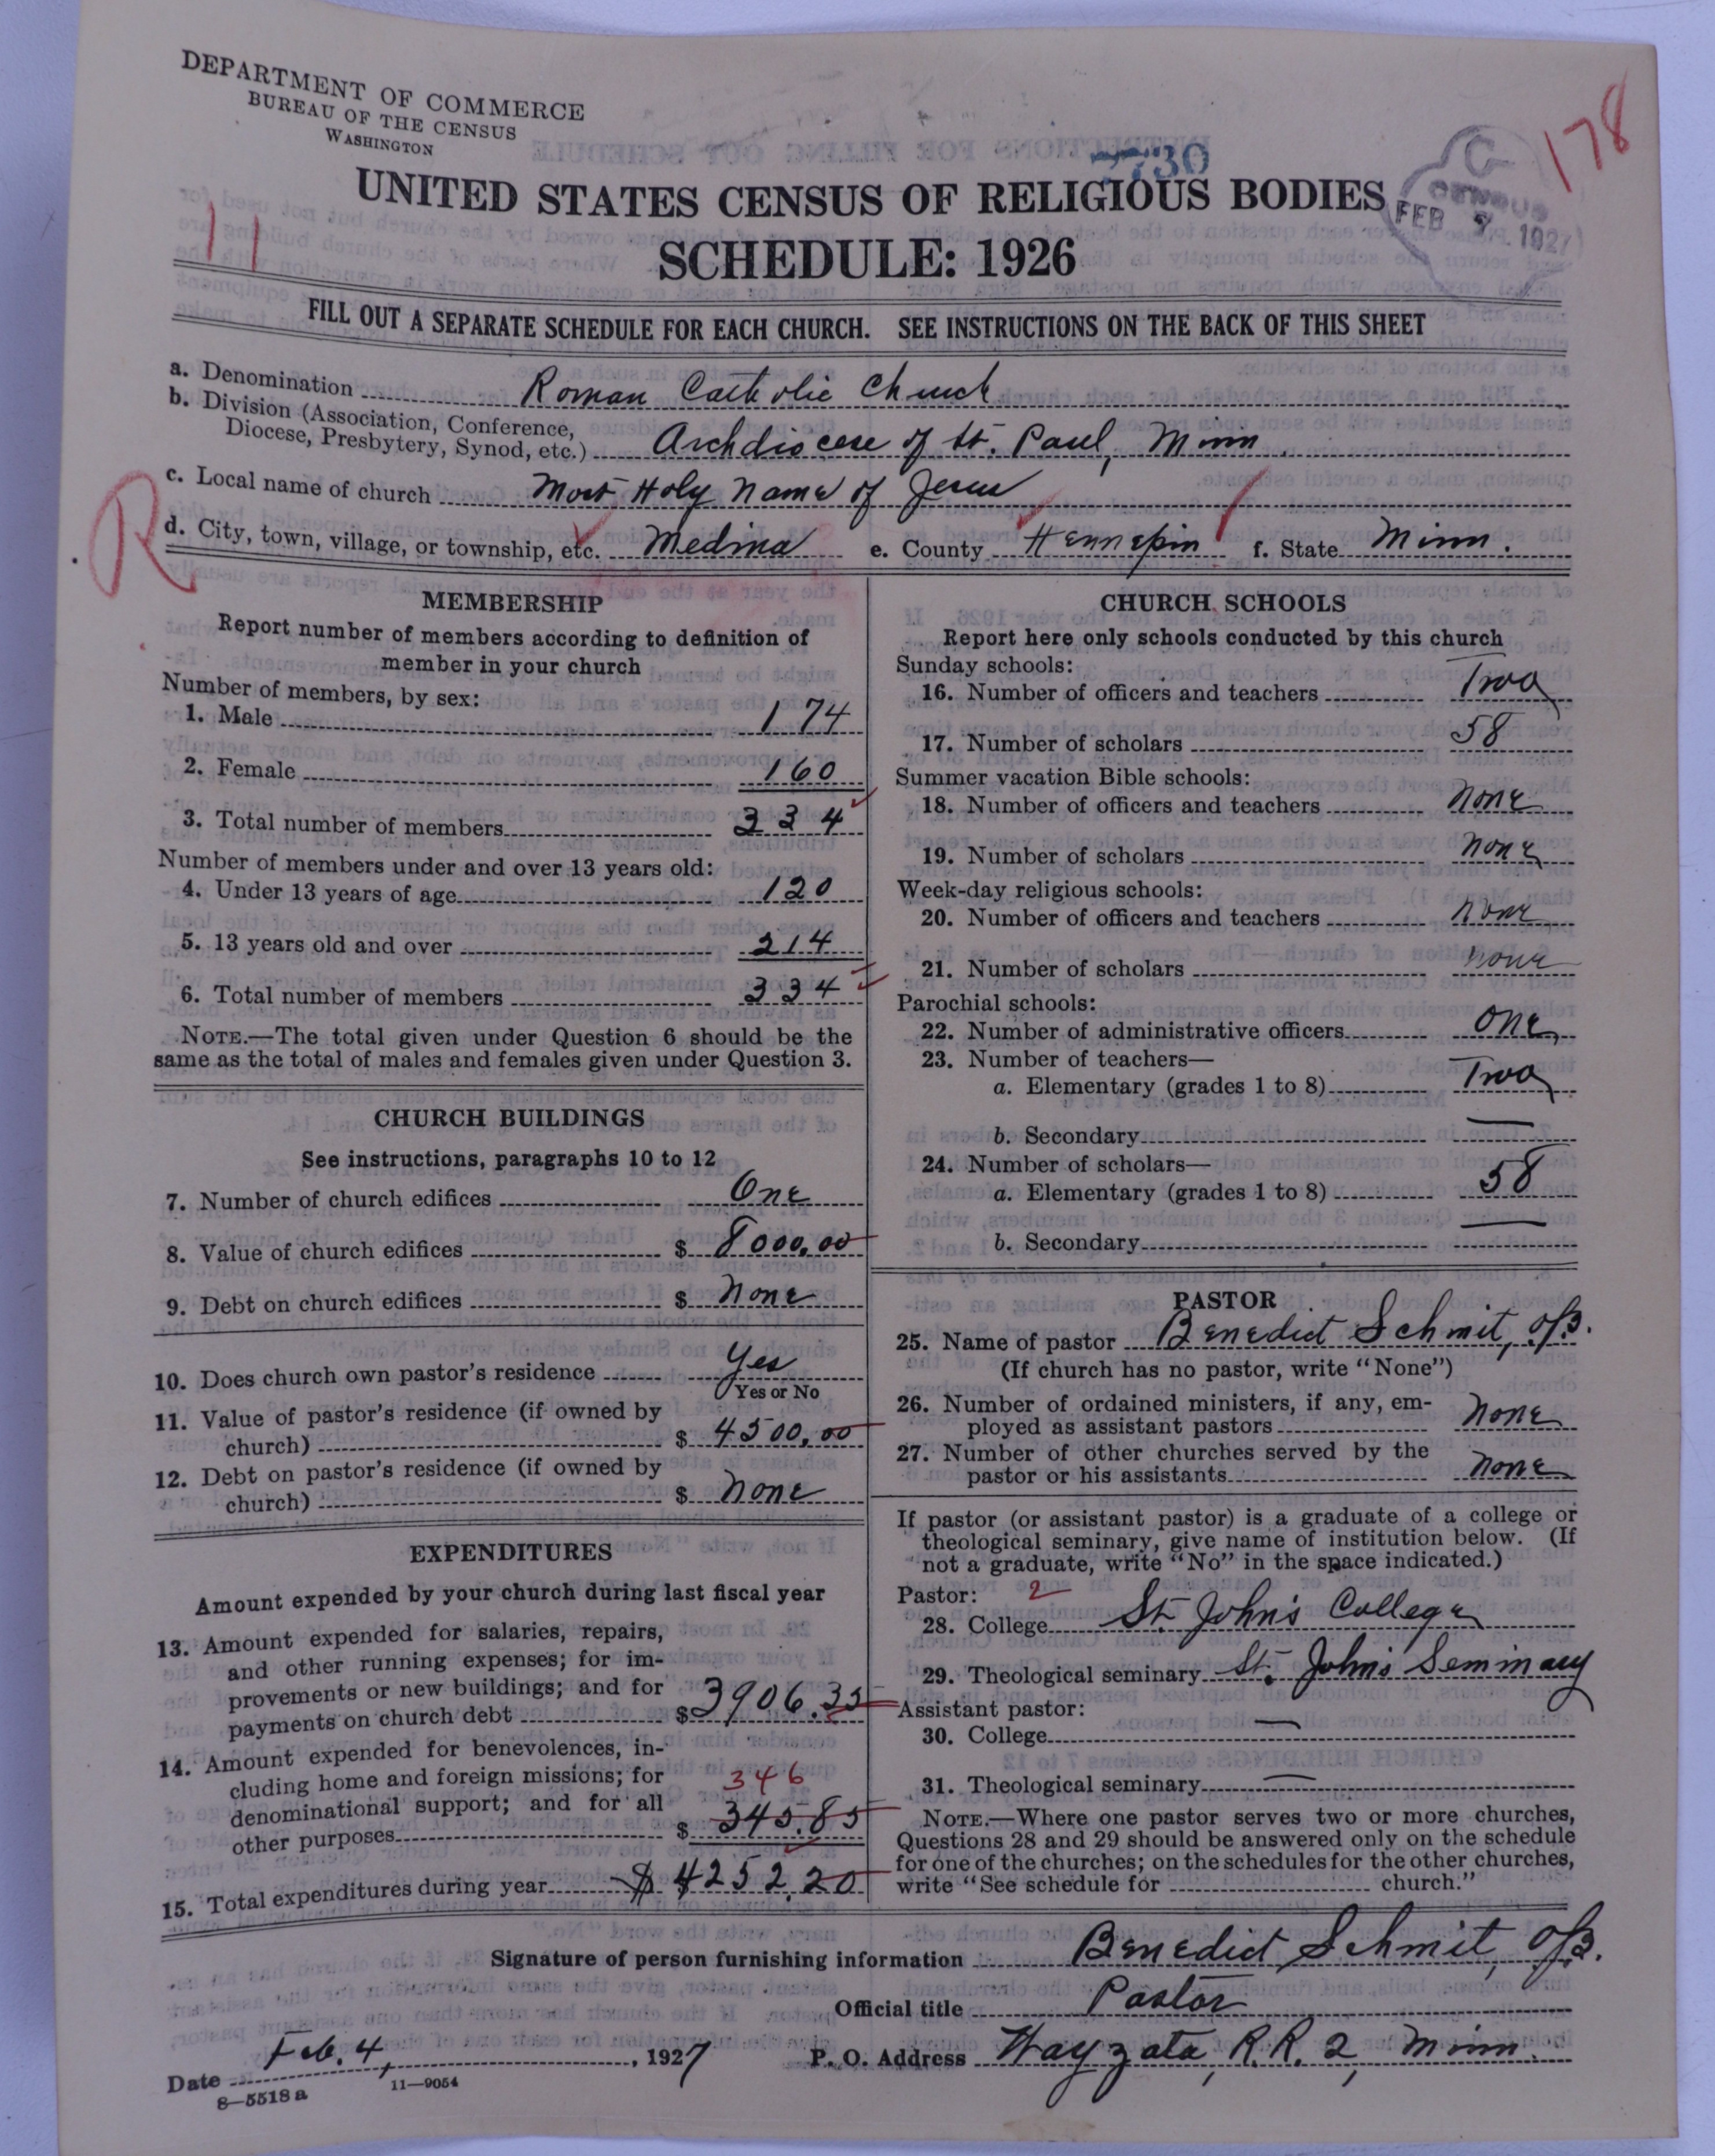 DEPARTMENT OF COMMERCE
BUREAU OF THE CENSUS
WASHINGTON
7730
178
C
CENSUS
FEB 9 1927
UNITED STATES CENSUS OF RELIGIOUS BODIES
11
SCHEDULE: 1926
FILL OUT A SEPARATE SCHEDULE FOR EACH CHURCH. SEE INSTRUCTIONS ON THE BACK OF THIS SHEET
a. Denomination Roman Catholic Church
b. Division (Association, Conference,
Diocese, Presbytery, Synod, etc.) Archdiocese of St. Paul, Minn.
c. Local name of church Most Holy Name of Jesus
R
d. City, town, village, or township, etc. Medina e. County Hennepin f. State Minn.
MEMBERSHIP
Report number of members according to definition of
member in your church
Number of members, by sex:
1. Male 174
2. Female 160
3. Total number of members 334
Number of members under and over 13 years old:
4. Under 13 years of age 120
5. 13 years old and over 214
6. Total number of members 334
NOTE.—The total given under Question 6 should be the
same as the total of males and females given under Question 3.
CHURCH BUILDINGS
See instructions, paragraphs 10 to 12
7. Number of church edifices One
8. Value of church edifices $ 8000.00
9. Debt on church edifices $ None
10. Does church own pastor's residence Yes
Yes or No
11. Value of pastor's residence (if owned by
church) $ 4500.00
12. Debt on pastor's residence (if owned by
church) $ None
EXPENDITURES
Amount expended by your church during last fiscal year
13. Amount expended for salaries, repairs,
and other running expenses; for im-
provements or new buildings; and for
payments on church debt $ 3906.35
14. Amount expended for benevolences, in-
cluding home and foreign missions; for
346
denominational support; and for all
other purposes $ 345.85
15. Total expenditures during year $ 4252.20
CHURCH SCHOOLS
Report here only schools conducted by this church
Sunday schools:
16. Number of officers and teachers Two
17. Number of scholars 58
Summer vacation Bible schools:
18. Number of officers and teachers None
19. Number of scholars None
Week-day religious schools:
20. Number of officers and teachers None
21. Number of scholars None
Parochial schools:
22. Number of administrative officers One
23. Number of teachers—
a. Elementary (grades 1 to 8) Two
b. Secondary —
24. Number of scholars—
a. Elementary (grades 1 to 8) 58
b. Secondary —
PASTOR
25. Name of pastor Benedict Schmit, OSB.
(If church has no pastor, write "None")
26. Number of ordained ministers, if any, em-
ployed as assistant pastors None
27. Number of other churches served by the
pastor or his assistants None
If pastor (or assistant pastor) is a graduate of a college or
theological seminary, give name of institution below. (If
not a graduate, write "No" in the space indicated.)
Pastor: 2
28. College St. John's College
29. Theological seminary St. John's Seminary
Assistant pastor:
30. College —
31. Theological seminary —
NOTE.—Where one pastor serves two or more churches,
Questions 28 and 29 should be answered only on the schedule
for one of the churches; on the schedules for the other churches,
write "See schedule for church."
Signature of person furnishing information Benedict Schmit, OSB.
Official title Pastor
Date Feb. 4, 1927 P. O. Address Wayzata, R.R. 2, Minn.
8—5518 a 11—9054